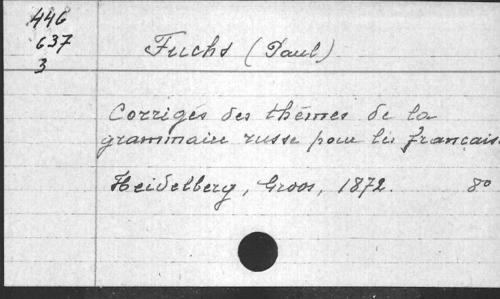 446
637
3
Fuchs (Paul)
Corrigés des thèmes de la
grammaire russe pour les français.
Heidelberg, Groos, 1872. 8°